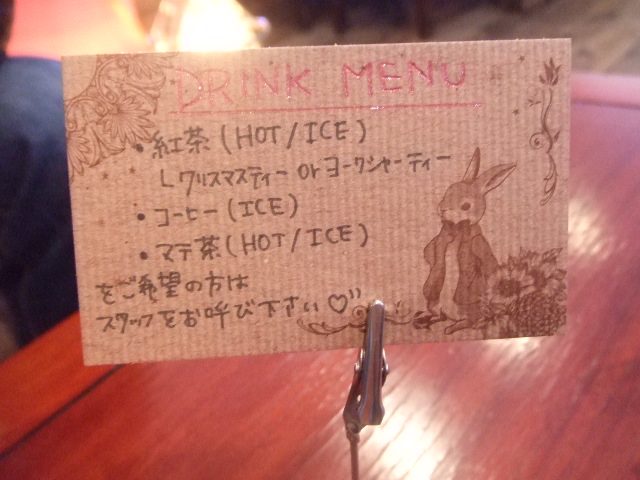 DRINK MENU
・紅茶(HOT/ICE)
└クリスマスティー orヨークシャーティー
・コーヒー(ICE)
・マテ茶(HOT/ICE)
をご希望の方は
スタッフをお呼び下さい♡